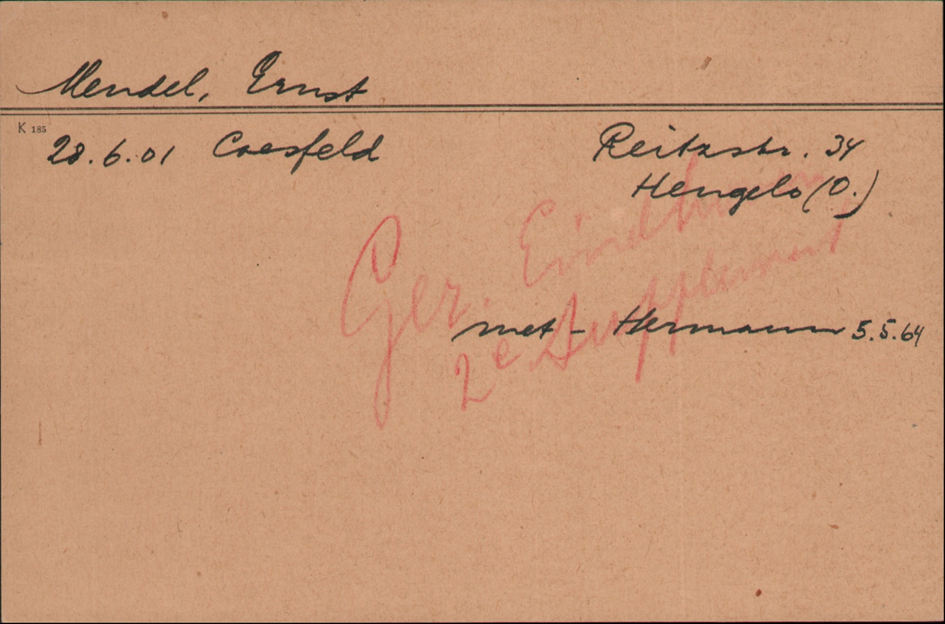 Mendel, Ernst
K 185
28.6.01 Coesfeld
Reitzstr. 34
Hengelo (O.)
Ger. Eindhoven
2e Supplement
met - Hermann 5.5.64